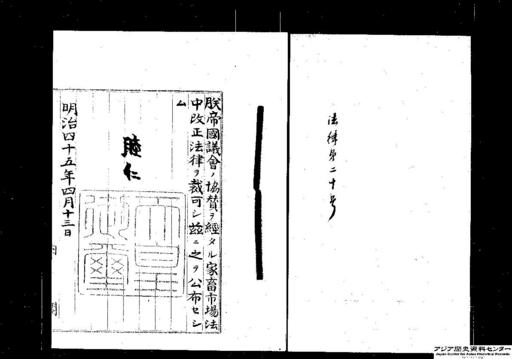 法律第二十号
朕帝國議會ノ協賛ヲ經タル家畜市場法
中改正法律ヲ裁可シ茲ニ之ヲ公布セシ
ム
睦仁
天皇御璽
明治四十五年四月十三日
アジア歴史資料センター
Japan Center for Asian Historical Records